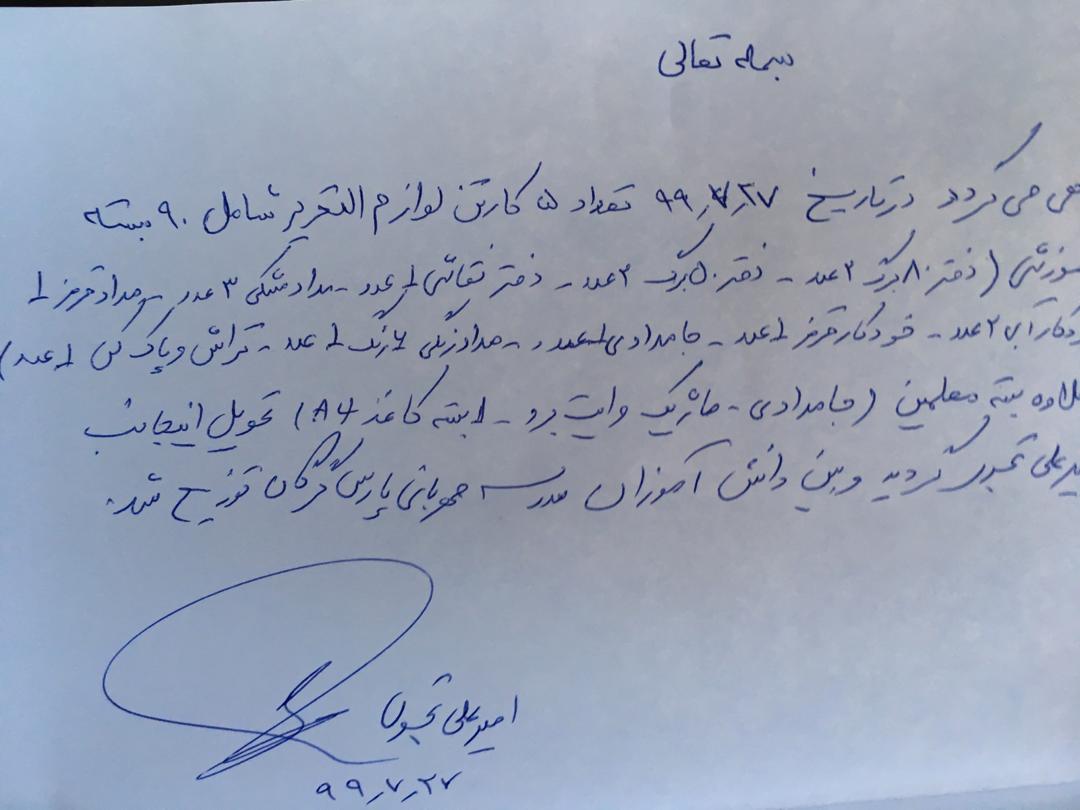 بسمه تعالی
می گردد در تاریخ ۹۹٫۷٫۲۷ تعداد ۵ کارتن لوازم التحریر شامل ۹۰ بسته
(دفتر ۸۰ برگ ۲ عدد - دفتر ۵۰ برگ ۲ عدد - دفتر نقاشی ۱ عدد - مداد مشکی ۳ عدد - مداد قرمز ۱
آبی ۲ عدد - خودکار قرمز ۱ عدد - جامدادی ۱ عدد - مداد رنگی ۶ رنگ ۱ عدد - تراش و پاک کن ۱ عدد)
بسته معلمین (جامدادی - ماژیک وایت برد - ۱ بسته کاغذ A4) تحویل اینجانب
گردید و بین دانش آموزان مدرسه مهربانی پارس گرگان توزیع شد.
امیرعلی
۹۹٫۷٫۲۷